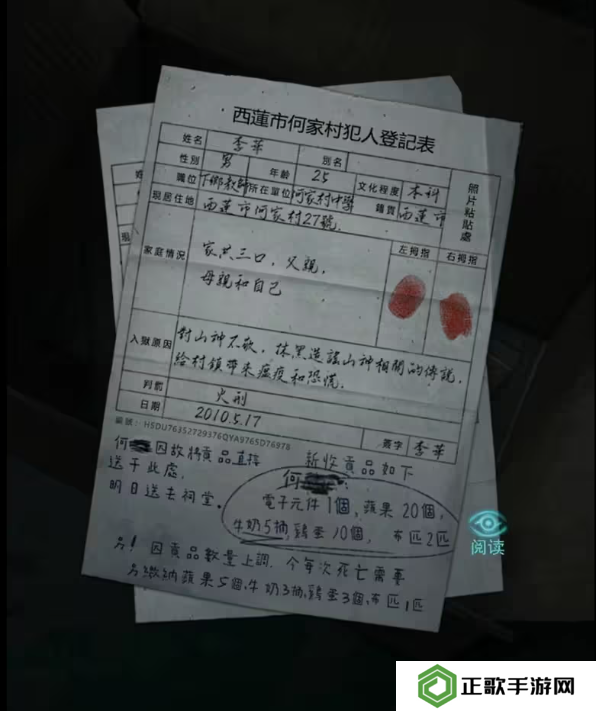 西蓮市何家村犯人登記表
姓名 李華 別名
性別 男 年齡 25 文化程度 本科
職位 下鄉教師 所在單位 何家村中學 籍貫 西蓮市
照片粘貼處
現居住地 西蓮市何家村27號.
家庭情況 家共三口，父親，
母親和自己
左拇指 右拇指
入獄原因 對山神不敬，抹黑造謠山神相關的傳說，
給村鎮帶來瘟疫和恐慌.
判罰 火刑
日期 2010.5.17 簽字 李華
編號：HSDU76352729376QYA9765D76978
何 因故將貢品直接
送于此處，
明日送去祠堂。
新收貢品如下
何
電子元件1個，蘋果20個，
牛奶5桶，雞蛋10個，布匹2匹
另！因貢品數量上調，今每次死亡需要
另繳納蘋果5個，牛奶3桶，雞蛋3個，布匹1匹
阅读
正歌手游网